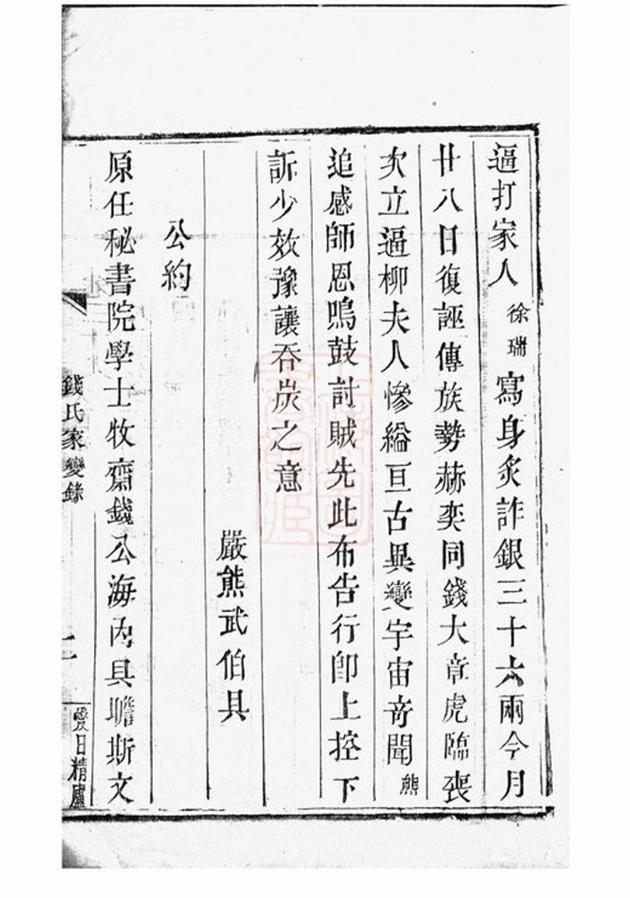 逼打家人徐瑞寫身炙詐銀三十六兩今月
廿八日復誣傳族勢赫奕同錢大章虎臨喪
次立逼柳夫人慘縊亘古異變宇宙奇聞熊
追感師恩鳴鼓討賊先此布告行卽上控下
訴少效豫讓吞炭之意
嚴熊武伯具
公約
原任秘書院學士牧齋錢公海內具瞻斯文
錢氏家變錄
虞日精廬